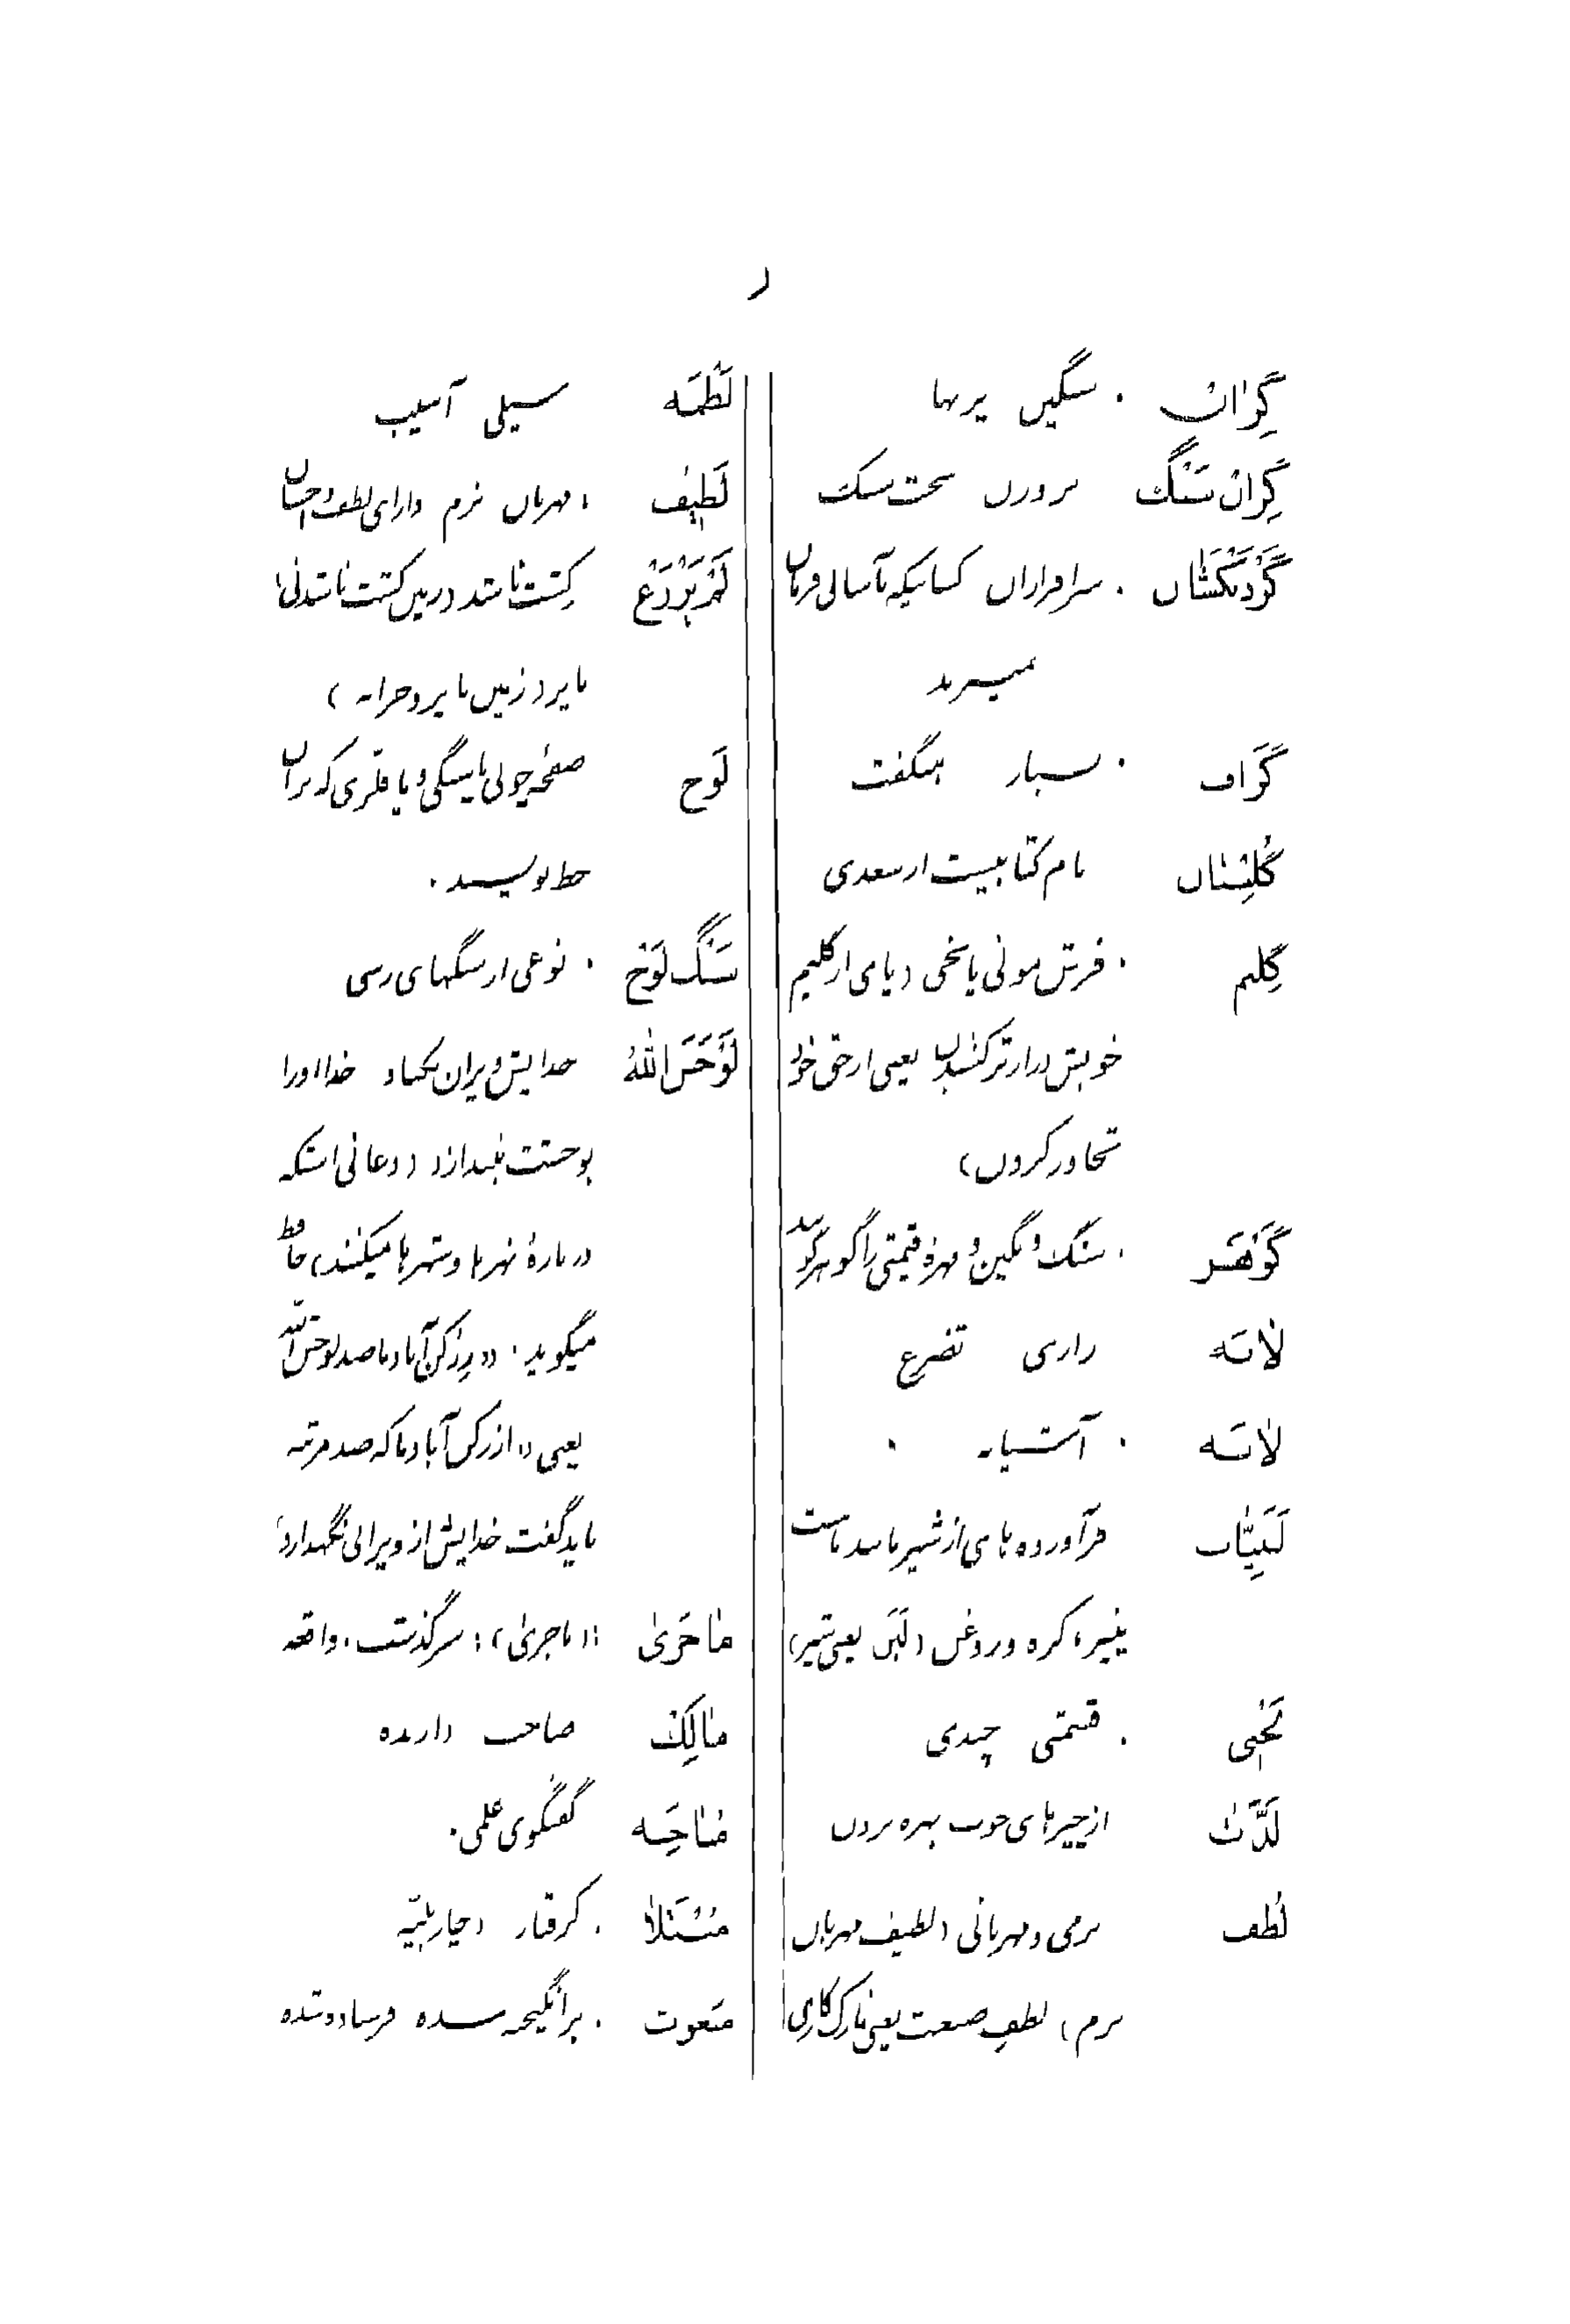 ر
گِرٰانْ . سنگین پربها
گِرٰانْ سَنْگ پروزن سخت سنگ
گَرْدَنْکَشٰان . سرافرازان کسانیکه بآسانی فرمان
نمیبرند
گَزٰاف . بسیار هنگفت
گُلِسْتٰان نام کتابیست از سعدی
گِلیم . فرش موئی یا نخی (پای از گلیم
خویش درازتر کشیدن یعنی از حق خود
تجاوز کردن)
گَوْهَر . سنگ و نگین و مهرهٔ قیمتی را گوهر گویند
لٰابَه زاری تضرع
لٰانَه . آشیانه .
لَبَنِیّٰات فرآورده‌های از شیر مانند ماست
پنیر، کره و روغن (لَبَن یعنی شیر)
لَخْتی . قسمتی چندی
لَذَّتْ از چیزهای خوب بهره بردن
لُطْف نرمی و مهربانی (لطیف مهربان
نرم) لطفِ صنعت یعنی نازک کاری
لَطْمَه سیلی آسیب
لَطیف ، مهربان نرم دارای لطف و احسان
لَمْ یَزْرَعْ کِشت ناشده (زمین کشت ناشدنی)
بایر (زمین بایر و خرابه)
لَوْح صفحه چوبی یا سنگی و یا فلزی که بر آن
خط نویسند .
سَنْگ لَوْح . نوعی از سنگهای رسی
لَوْحَشَ اللّٰهُ خدایش ویران نکناد خدا او را
بوحشت نیندازد (دعائی استکه
دربارهٔ نهرها و شهرها میکنند) حافظ
میگوید . «ز رکن آباد ما صد لوحش الله
یعنی «از رکن آباد ما که صد مرتبه
باید گفت خدایش از ویرانی نگهدارد»
مٰاجَریٰ : (ماجریٰ) : سرگذشت، واقعه
مٰالِکْ صاحب دارنده
مُبٰاحِثَه گفتگوی علمی .
مُبْتَلاٰ . گرفتار دچار بلیّه
مَبعوث . برانگیخته شده فرستاده شده